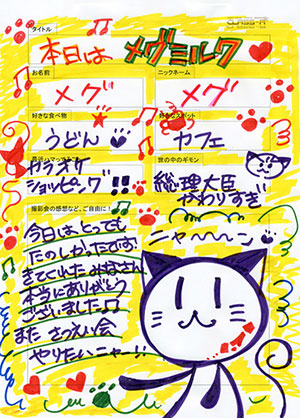 CLASS-A
タイトル
本日は メグミルク
お名前
メグ
ニックネーム
メグ
好きな食べ物
うどん
好きなスポット
カフェ
カラオケ
ショッピング!!
世の中のギモン
総理大臣
かわりすぎ
撮影会の感想など、ご自由に!
ニャ〜〜〜ン
今日はとっても
たのしかったです!
きてくれたみなさん
本当にありがとう
ございました♫
また さつえい会
やりたいニャー!!